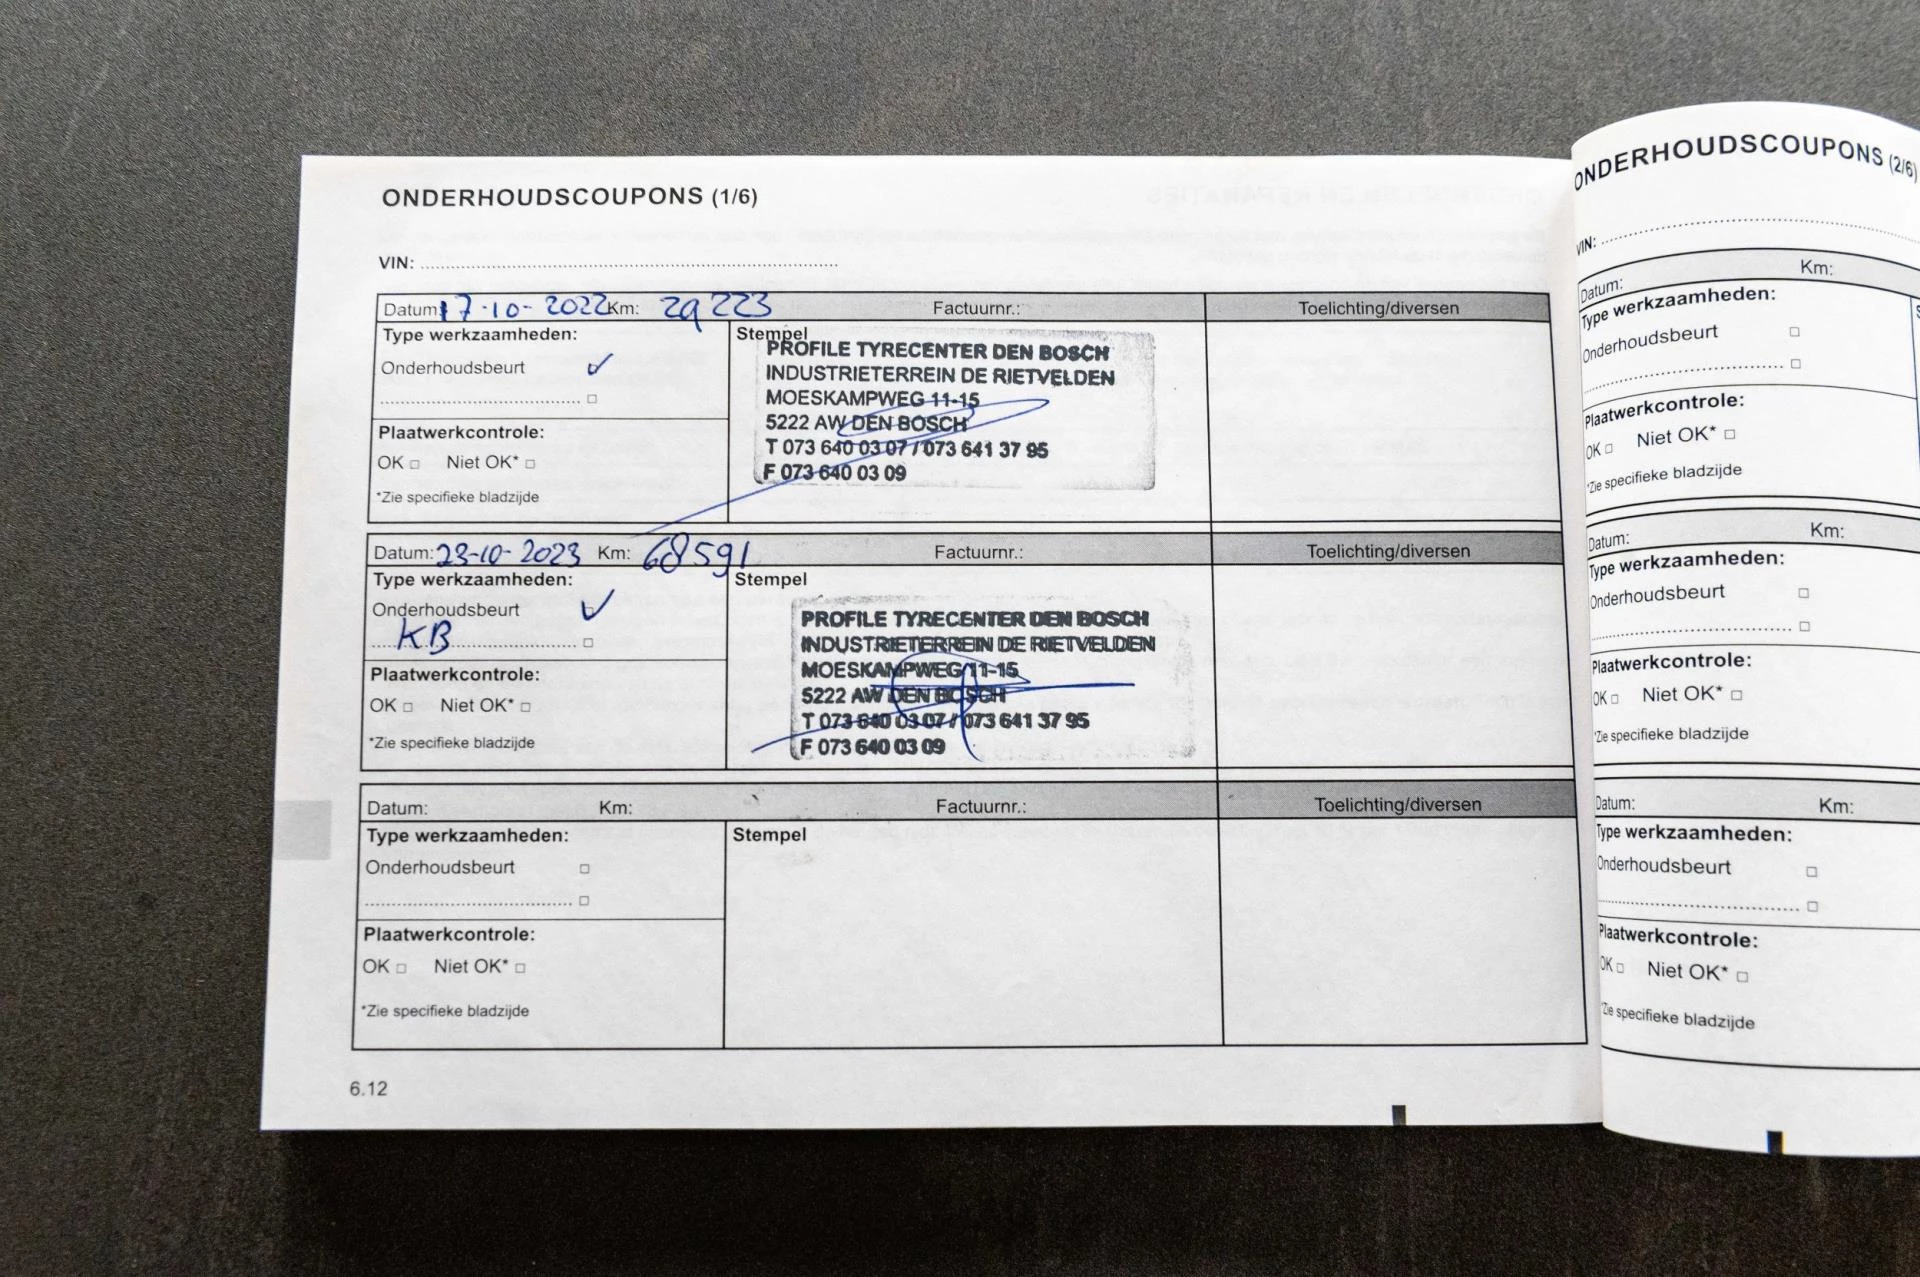 ONDERHOUDSCOUPONS (1/6)
VIN:
Datum: 17-10-2022 Km: 29 223 Factuurnr.: Toelichting/diversen
Type werkzaamheden: Stempel
Onderhoudsbeurt
Plaatwerkcontrole:
OK Niet OK*
*Zie specifieke bladzijde
PROFILE TYRECENTER DEN BOSCH
INDUSTRIETERREIN DE RIETVELDEN
MOESKAMPWEG 11-15
5222 AW DEN BOSCH
T 073 640 03 07 / 073 641 37 95
F 073 640 03 09
Datum: 23-10-2023 Km: 68591 Factuurnr.: Toelichting/diversen
Type werkzaamheden: Stempel
Onderhoudsbeurt
KB
Plaatwerkcontrole:
OK Niet OK*
*Zie specifieke bladzijde
PROFILE TYRECENTER DEN BOSCH
INDUSTRIETERREIN DE RIETVELDEN
MOESKAMPWEG 11-15
5222 AW DEN BOSCH
T 073 640 03 07 / 073 641 37 95
F 073 640 03 09
Datum: Km: Factuurnr.: Toelichting/diversen
Type werkzaamheden: Stempel
Onderhoudsbeurt
Plaatwerkcontrole:
OK Niet OK*
*Zie specifieke bladzijde
6.12
ONDERHOUDSCOUPONS (2/6)
VIN:
Datum: Km:
Type werkzaamheden:
Onderhoudsbeurt
Plaatwerkcontrole:
OK Niet OK*
*Zie specifieke bladzijde
Datum: Km:
Type werkzaamheden:
Onderhoudsbeurt
Plaatwerkcontrole:
OK Niet OK*
*Zie specifieke bladzijde
Datum: Km:
Type werkzaamheden:
Onderhoudsbeurt
Plaatwerkcontrole:
OK Niet OK*
*Zie specifieke bladzijde